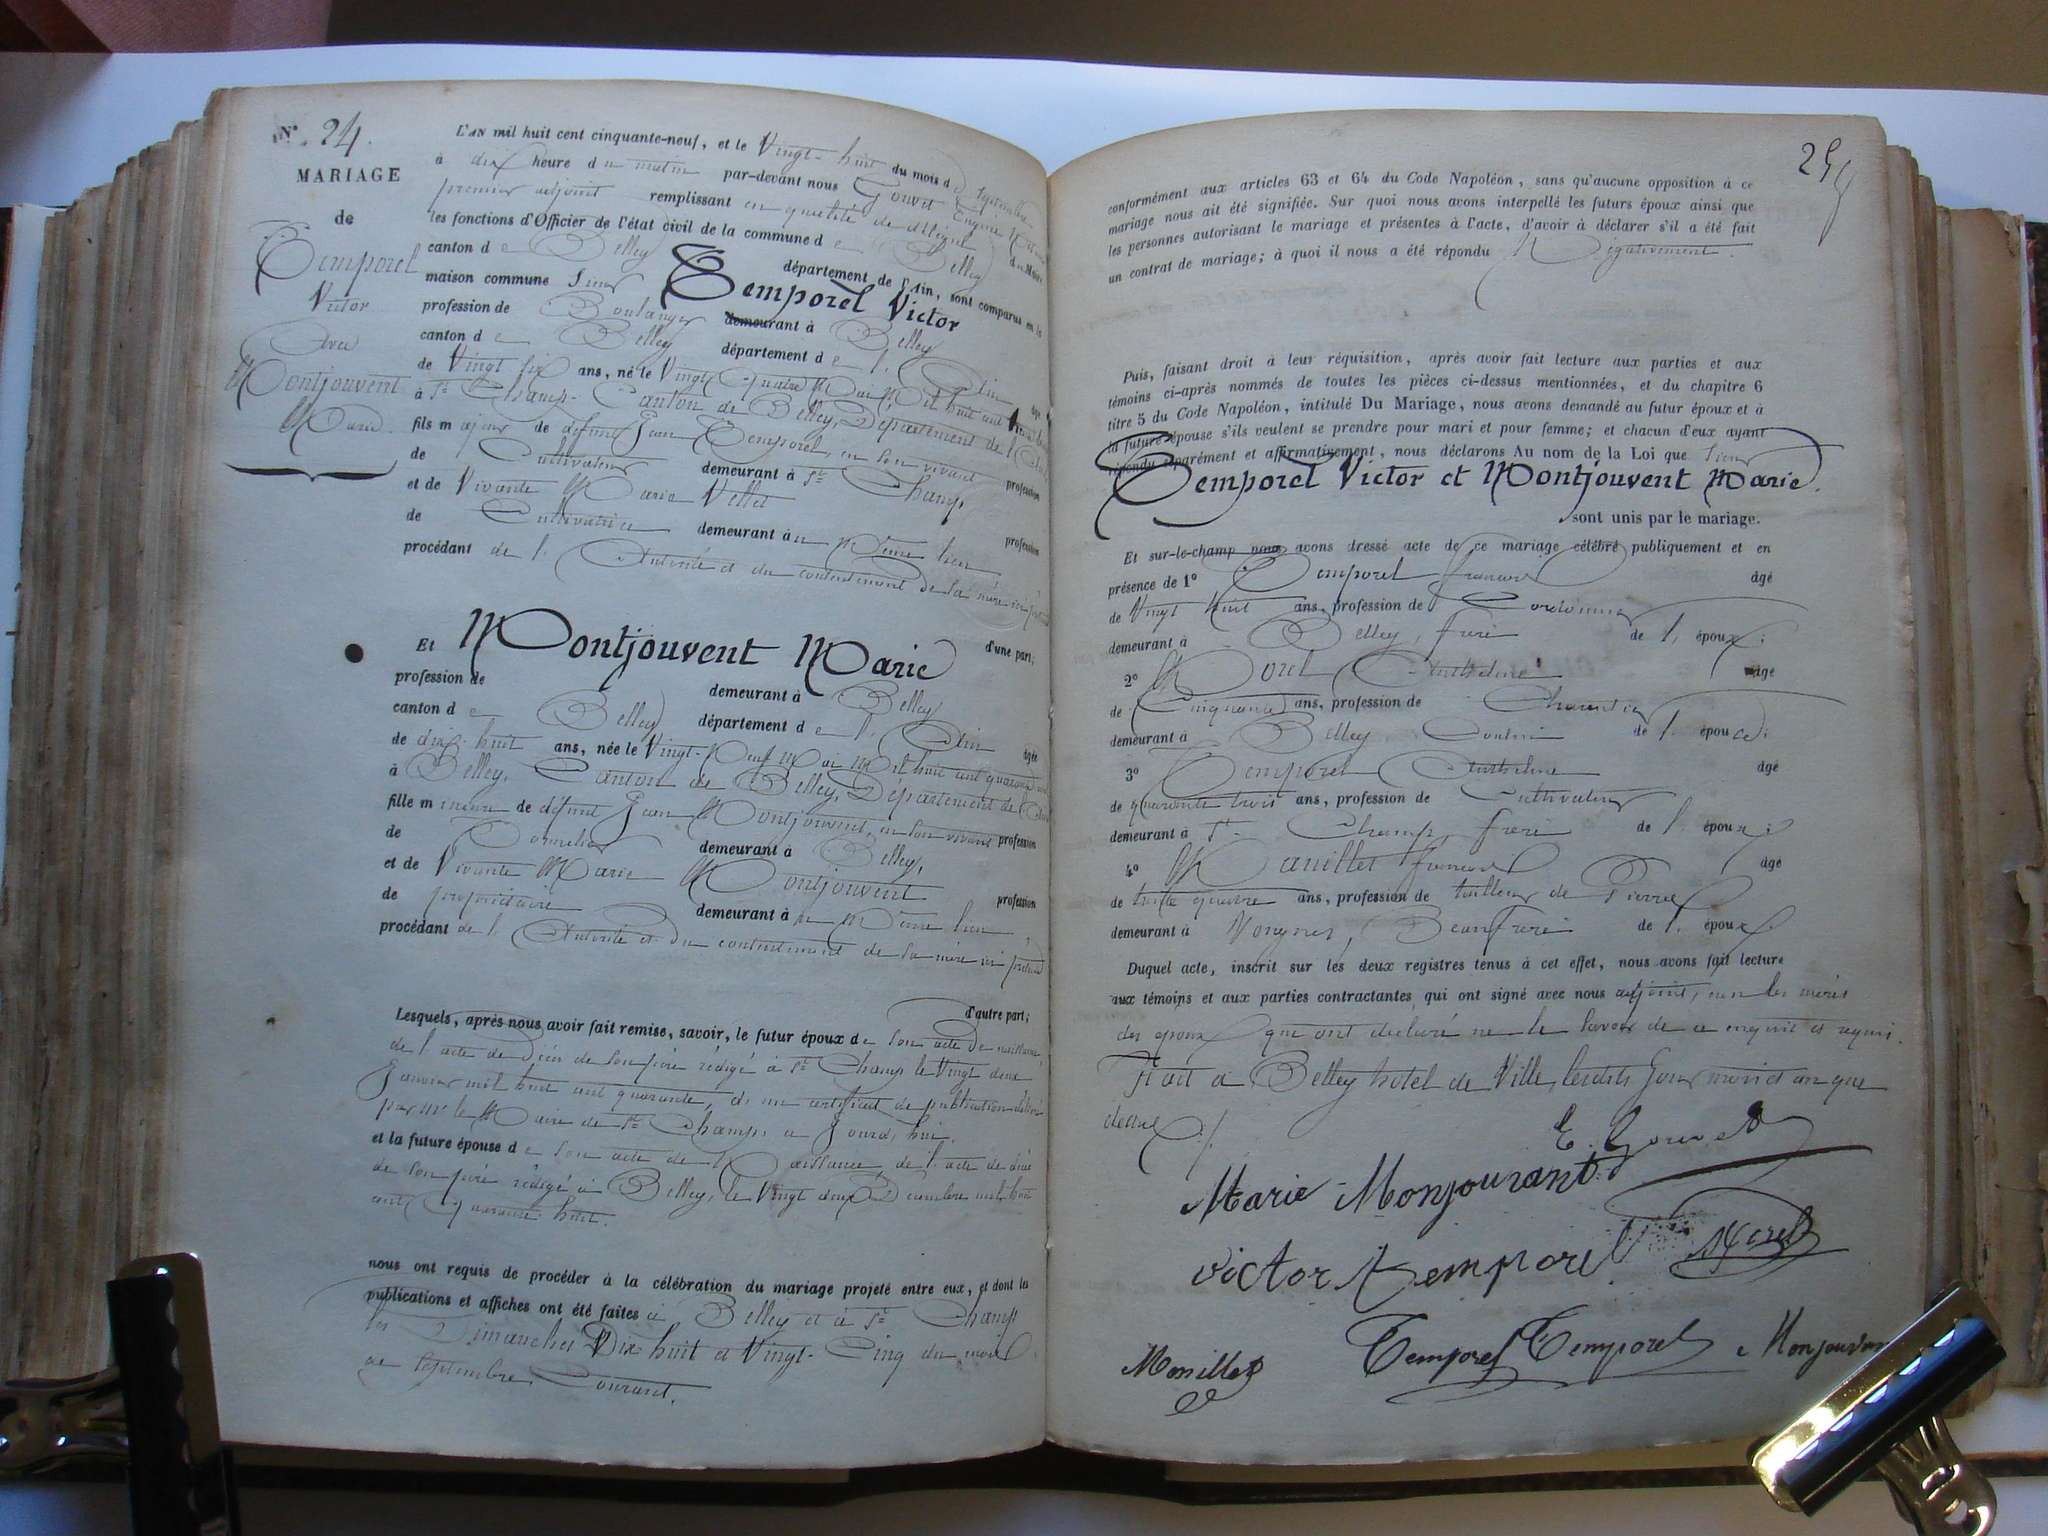 N° 24.
MARIAGE
de
Temporel
Victor
Avec
Montjouvent
Marie.
L'AN mil huit cent cinquante-neuf, et le Vingt-huit du mois de Septembre
à dix heure du matin par-devant nous Gouvet Eugène
premier adjoint remplissant en qualité de délégué du Maire
les fonctions d'Officier de l'état civil de la commune de Belley
canton de Belley département de l'Ain, sont comparus en la
maison commune Sieur Temporel Victor
profession de Boulanger demeurant à Belley
canton de Belley département de l'Ain âgé
de Vingt six ans, né le Vingt Quatre Mai Mil huit cent
à St Champ, Canton de Belley, Département de l'Ain
fils majeur de défunt Jean Temporel, en son vivant profession
de Cultivateur demeurant à St Champ,
et de Vivante Marie Vellet profession
de Cultivatrice demeurant au Même lieu
procédant de l'Autorité et du consentement de sa mère ici présente
d'une part;
Et Montjouvent Marie
profession de demeurant à Belley
canton de Belley département de l'Ain âgée
de dix-huit ans, née le Vingt-Neuf Mai Mil huit cent quarante
à Belley, Canton de Belley, Département de l'Ain
fille mineure de défunt Jean Montjouvent, en son vivant profession
de Tonnelier demeurant à Belley,
et de Vivante Marie Montjouvent profession
de propriétaire demeurant au Même lieu
procédant de l'Autorité et du consentement de sa mère ici présente
d'autre part;
Lesquels, après nous avoir fait remise, savoir, le futur époux de son acte de naissance,
de l'acte de Décès de son père rédigé à St Champ le Vingt deux
Janvier mil huit cent quarante, d'un certificat de publication délivré
par Mr le Maire de St Champ, ce Jourd'hui.
et la future épouse de son acte de Naissance, de l'acte de décès
de son père rédigé à Belley, le Vingt deux Décembre mil huit
cent Quarante huit.
nous ont requis de procéder à la célébration du mariage projeté entre eux, et dont la
publications et affiches ont été faites à Belley et à St Champ
les Dimanches Dix-huit et Vingt-Cinq du mois
de Septembre Courant.
conformément aux articles 63 et 64 du Code Napoléon, sans qu'aucune opposition à ce
mariage nous ait été signifiée. Sur quoi nous avons interpellé les futurs époux ainsi que
les personnes autorisant le mariage et présentes à l'acte, d'avoir à déclarer s'il a été fait
un contrat de mariage; à quoi il nous a été répondu Négativement.
Puis, faisant droit à leur réquisition, après avoir fait lecture aux parties et aux
témoins ci-après nommés de toutes les pièces ci-dessus mentionnées, et du chapitre 6
titre 5 du Code Napoléon, intitulé Du Mariage, nous avons demandé au futur époux et à
la future épouse s'ils veulent se prendre pour mari et pour femme; et chacun d'eux ayant
répondu séparément et affirmativement, nous déclarons Au nom de la Loi que Sieur
Temporel Victor et Montjouvent Marie.
sont unis par le mariage.
Et sur-le-champ nous avons dressé acte de ce mariage célébré publiquement et en
présence de 1° Temporel françois âgé
de Vingt huit ans, profession de Cordonnier
demeurant à Belley, frère de l'époux;
2° Morel Anthelme âgé
de Cinquante ans, profession de
demeurant à Belley, Cousin de l'épouse;
3° Temporel Anthelme âgé
de quarante trois ans, profession de Cultivateur
demeurant à St Champ, frère de l'époux;
4° françois âgé
de trente quatre ans, profession de tailleur de Pierre
demeurant à Vongnes, Beaufrère de l'époux.
Duquel acte, inscrit sur les deux registres tenus à cet effet, nous avons fait lecture
aux témoins et aux parties contractantes qui ont signé avec nous adjoint, non les mères
des époux qui ont déclaré ne le savoir de ce enquis et requis.
Fait à Belley hotel de Ville, lesdits Jour mois et an que
dessus ./.
E. Gouvet
Marie Monjouvant
victor temporel Morel
Monillet Temporel Temporel Monjouvent